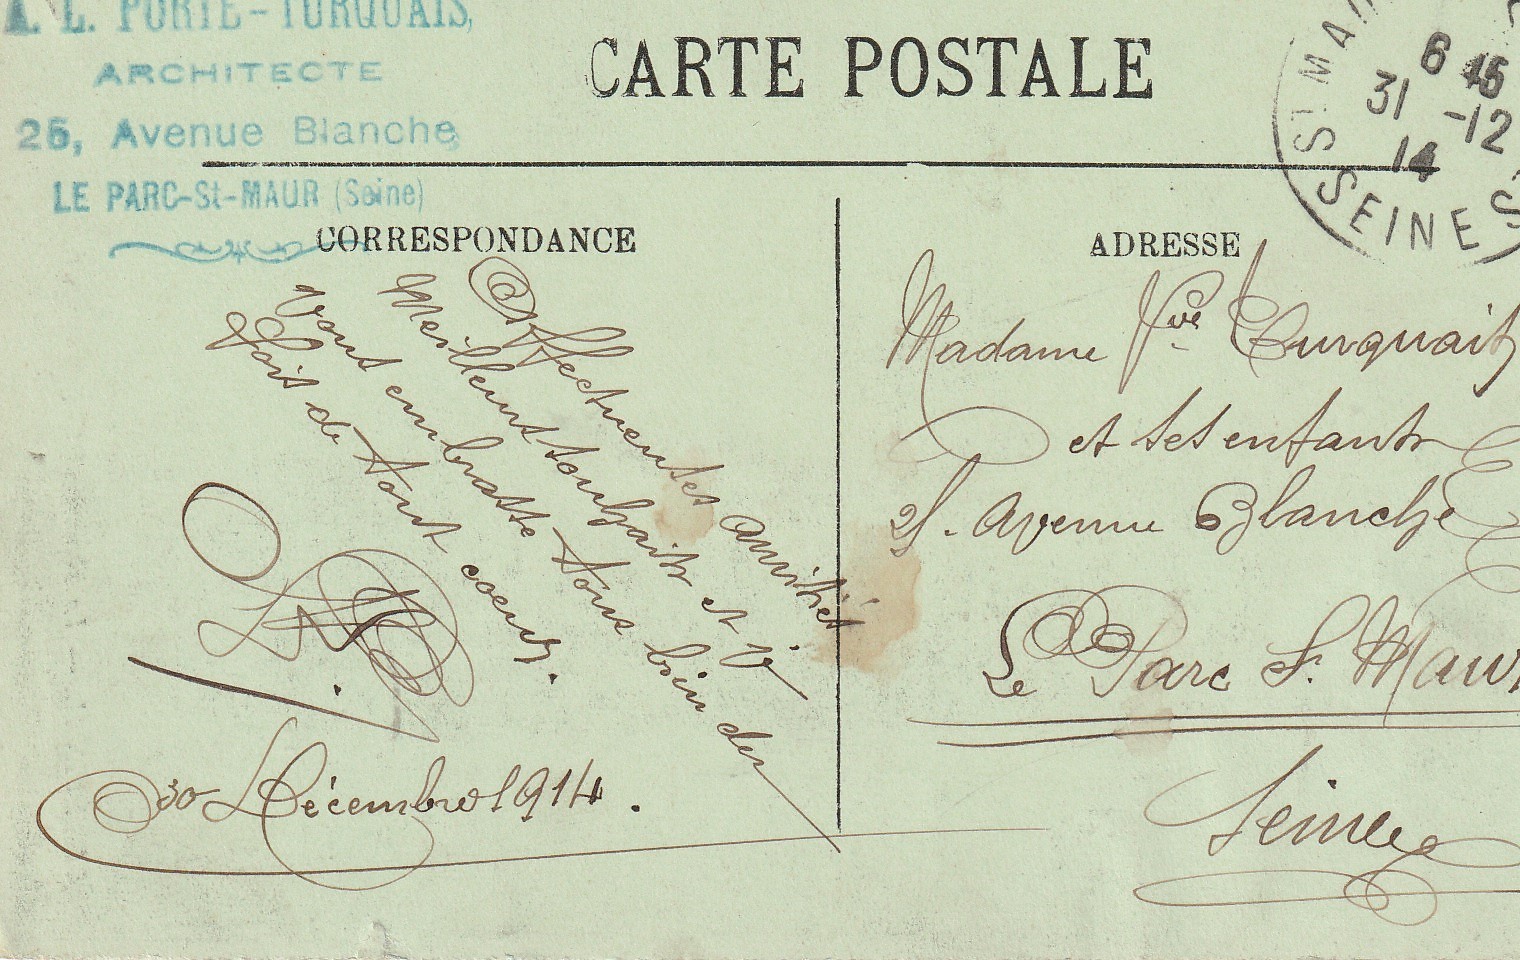 L. PORTE-TURQUAIS,
ARCHITECTE
25, Avenue Blanche
LE PARC-St-MAUR (Seine)
CARTE POSTALE
ST MAUR
6 45
31 -12
14
SEINE
CORRESPONDANCE
ADRESSE
Affectueuses amitiés
Meilleurs souhaits et V
Vous embrasse tous bien des
fois de tout coeur.
30 Décembre 1914.
Madame Vve Turquais
et ses enfants
25. Avenue Blanche
Le Parc St. Maur
Seine